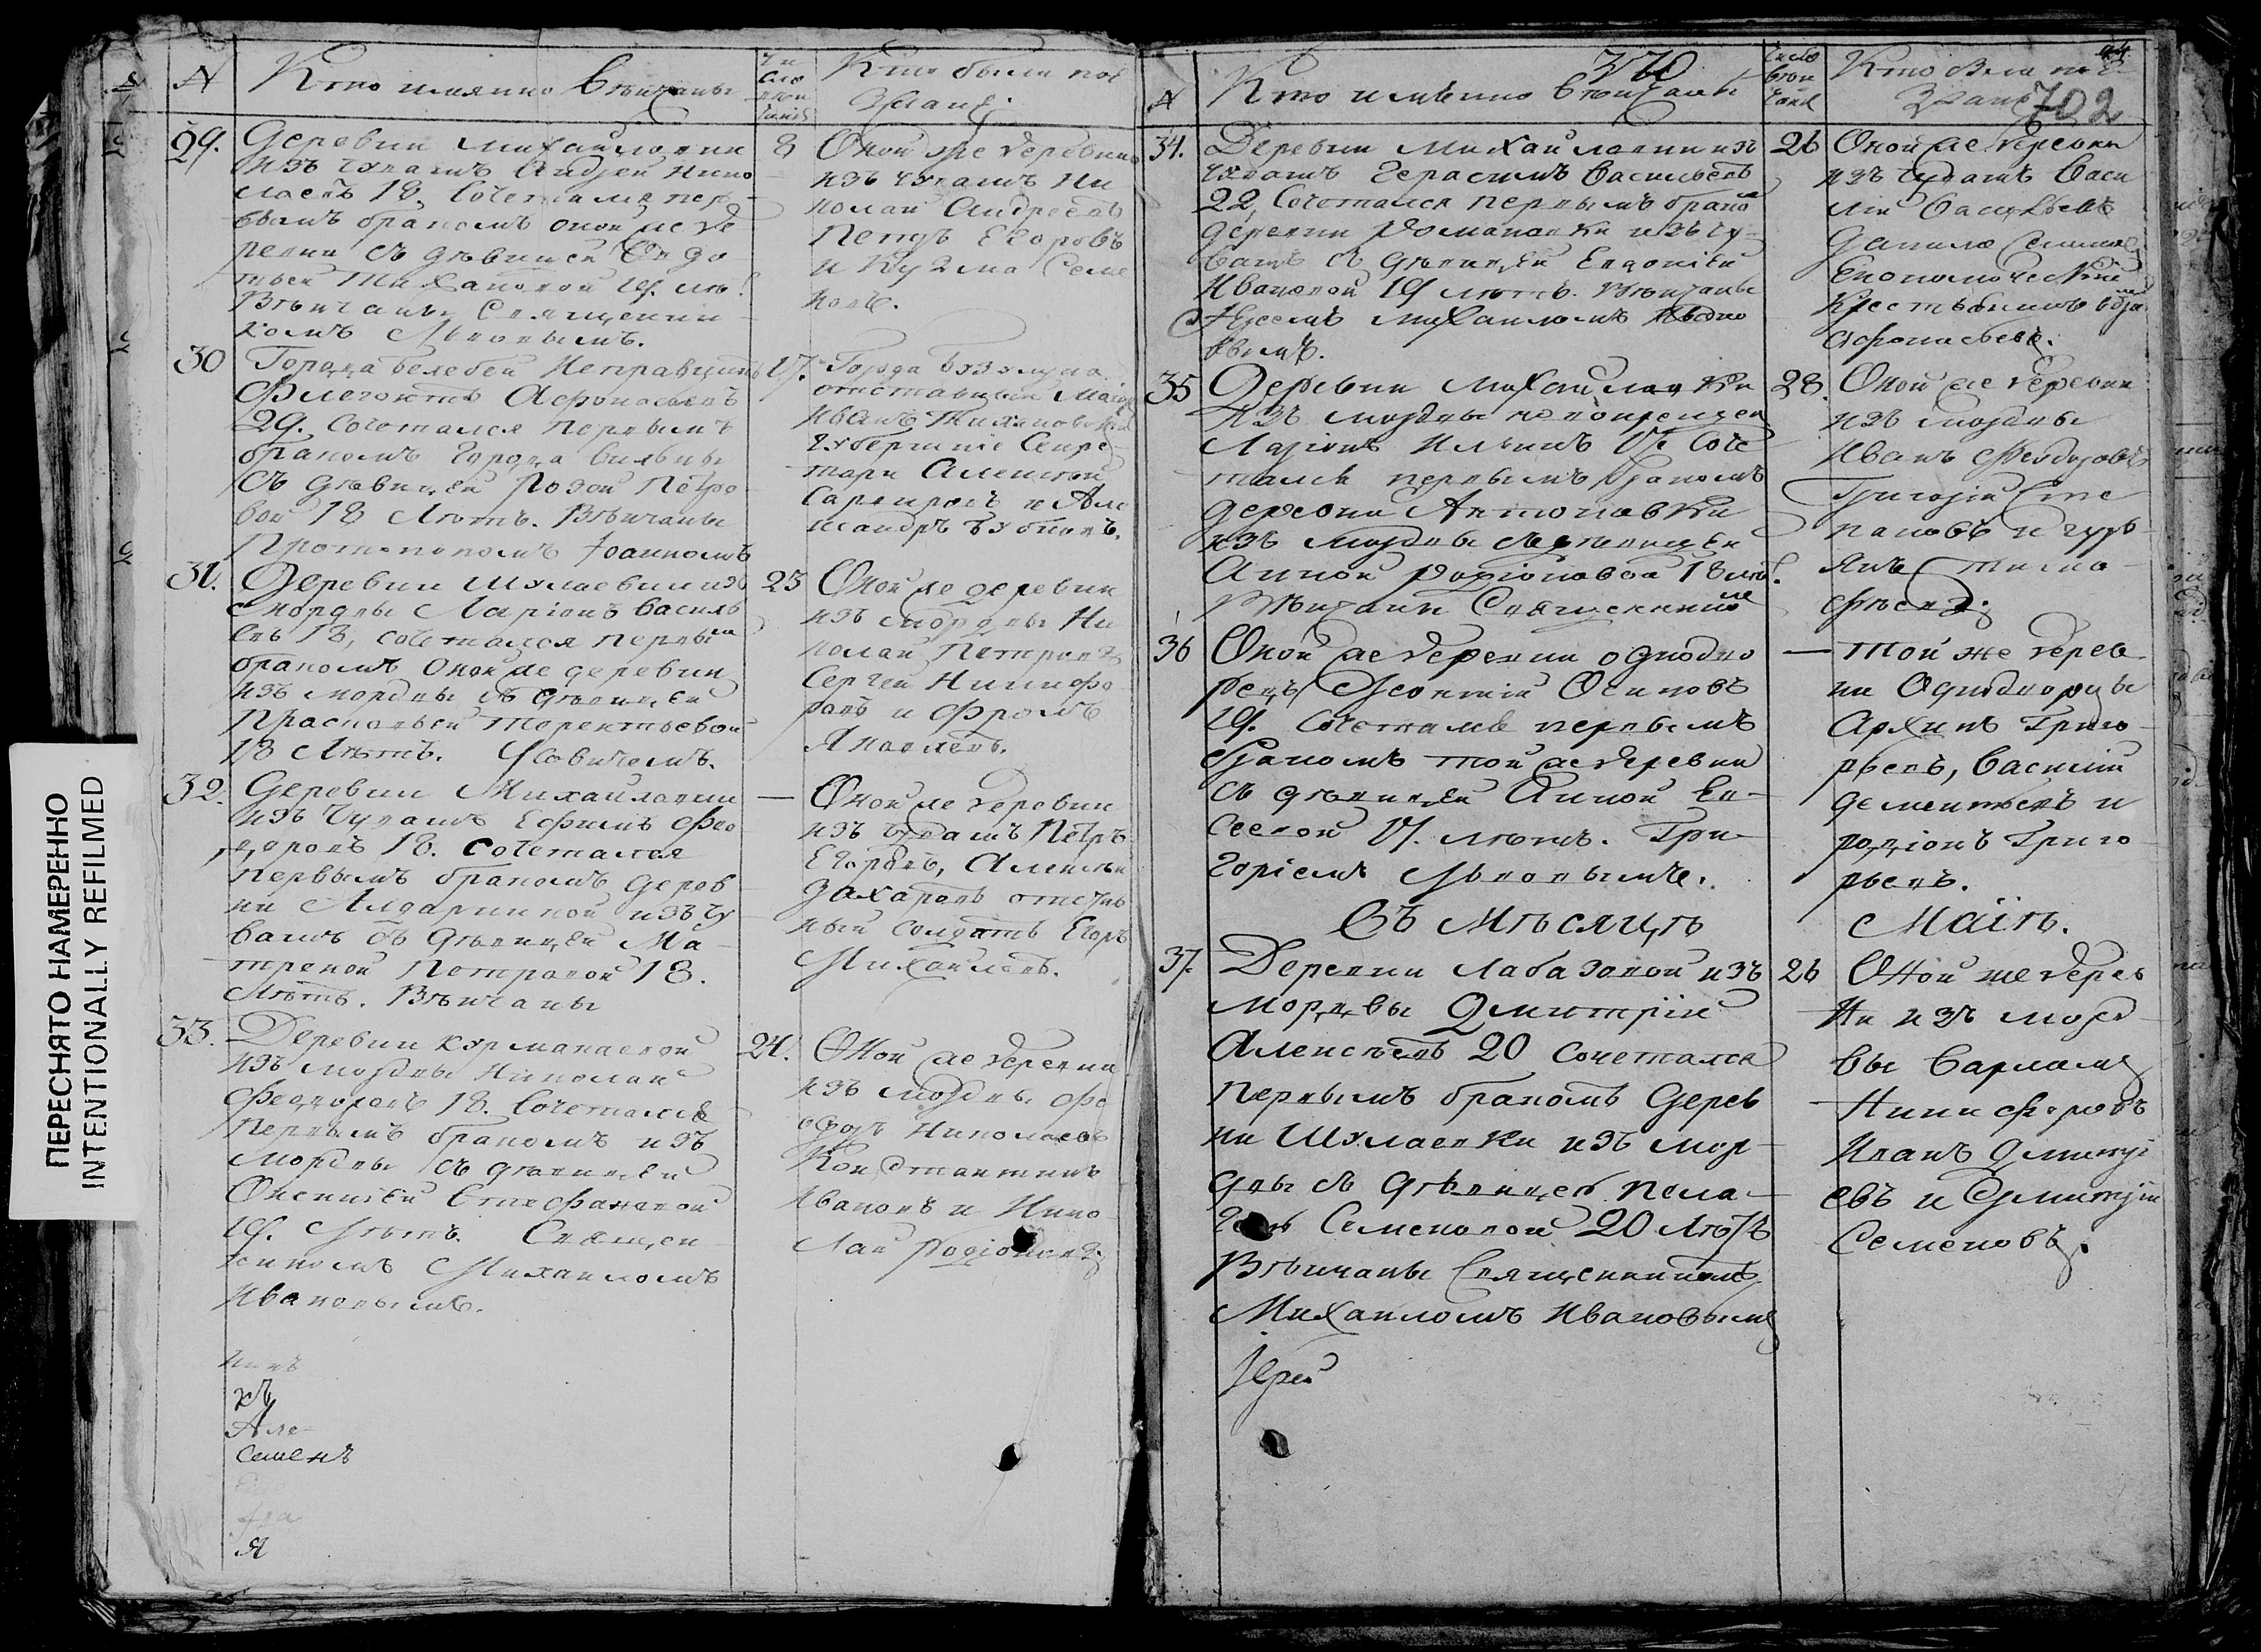 ПЕРЕСНЯТО НАМЕРЕННО
INTENTIONALLY REFILMED
№
Кто имянно венчаны
Чи
сло
Кто были пое
29.
Деревни Михайловки
изъ чувашъ Андрей Нико
лаевъ 18. Сочетался пер
вымъ бракомъ оной же де
ревни съ девицей Евдо
Венчаны Священни
комъ Львовымъ.
8
Оной же деревни
изъ чувашъ Ни
колай Андреевъ
Петръ Егоровъ
и Кузма Семе
новъ.
30
Города Белебея Исправникъ
Флегонтъ Афонасьевъ
29. Сочетался первымъ
бракомъ города
съ девицей Розой Петро
вой 18 летъ. Венчаны
Протопопомъ Іоанномъ
17.
Города Бузулука
отставной
Иванъ
Губернскіе Секре
тари Алексей
и Але
ксандръ
31.
Деревни Шулаевки изъ
мордвы Ларіонъ Василь
евъ 18, сочетался первым
бракомъ оной же деревни
изъ мордвы съ девицей
Прасковьей Терентьевой
18 летъ. Львовичемъ.
23
Оной же деревни
изъ мордвы Ни
колай Петровъ
Сергей Никифо
ровъ и Фролъ
Яковлевъ.
32.
Деревни Михайловки
изъ чувашъ Ефимъ Фео
доровъ 18. сочетался
первымъ бракомъ дерев
ни Алдаркиной изъ чу
вашъ съ девицей Ма
треной Петровой 18.
летъ. Венчаны
—
Оной же деревни
изъ чувашъ Петръ
Егоровъ, Алексей
Захаровъ отстав
ный солдатъ Егоръ
Михайловъ.
33.
Деревни Курманаевой
изъ мордвы Николай
Феодоровъ 18. Сочетался
первымъ бракомъ изъ
мордвы съ девицей
Оксиніей Стефановой
19. летъ. Священ
никомъ Михаиломъ
Ивановымъ.
24.
Оной же деревни
изъ мордвы Фе
одоръ Николаевъ
Константинъ
Ивановъ и Нико
лай Родіоновъ
Але
Семенъ
я
370
№
Кто имянно венчаны
Число
Кто были пое
702
34.
Деревни Михайловки изъ
чувашъ Герасимъ Васильевъ
22, Сочетался первымъ брако
деревни Романовки изъ чу
вашъ съ девицей Евдокіей
Ивановой 19 летъ. Венчаны
Іереемъ Михаиломъ Ивано
вымъ.
26
Оной же деревни
изъ чувашъ Васи
лій Васильевъ
Данило Семенов
Економическій
крестьянинъ
Афонасьевъ.
35
Деревни Михайловки
изъ мордвы новокрещен
Ларіонъ Ильинъ 17 Соче
тался первымъ бракомъ
деревни Антоновки
изъ мордвы съ девицей
Анной Родіоновой 18 лет.
Венчаны Священник
28.
Оной же деревни
изъ мордвы
Иванъ Феодоровъ
Григорій Сте
пановъ и Гурь
янъ Тимо
феевъ
36
Оной же деревни однодво
рецъ Леонтій Осиповъ
19. Сочетался первымъ
бракомъ той же деревни
съ девицей Анной Ев
сеевой 17. летъ. Гри
горіемъ Львовымъ.
—
Той же дерев
ни Однодворцы
Архипъ Григо
рьевъ, Василій
Дементьевъ и
Родіонъ Григо
рьевъ.
Въ Месяце Маіе.
37.
Деревни Лабазовой изъ
мордвы Дмитрій
Алексеевъ 20 сочетался
первымъ бракомъ дерев
ни Шулаевки изъ мор
двы съ девицей Пела
геей Семеновой 20 летъ
Венчаны Священникомъ
Михаиломъ Ивановымъ
26
Оной же дерев
ни изъ морд
вы Варламъ
Никифоровъ
Иванъ Дмитрі
евъ и Дмитрій
Семеновъ.
Іерей